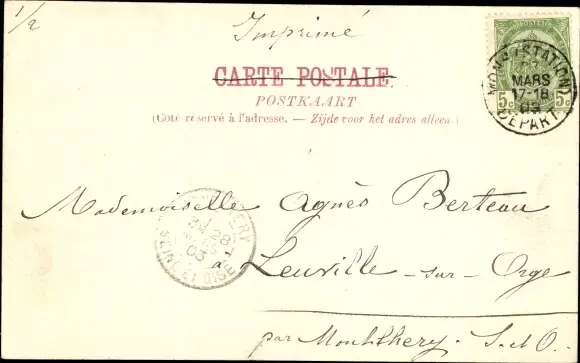 1/2
Imprimé
CARTE POSTALE.
POSTKAART
(Côté réservé à l'adresse. — Zijde voor het adres alleen.)
MONS (STATION)
MARS
17-18
03
DÉPART
5c 5c
Mademoiselle Agnès Berteau
28
03
SEINE ET OISE
à Leuville - sur - Orge
par Montlhery. S. et O.